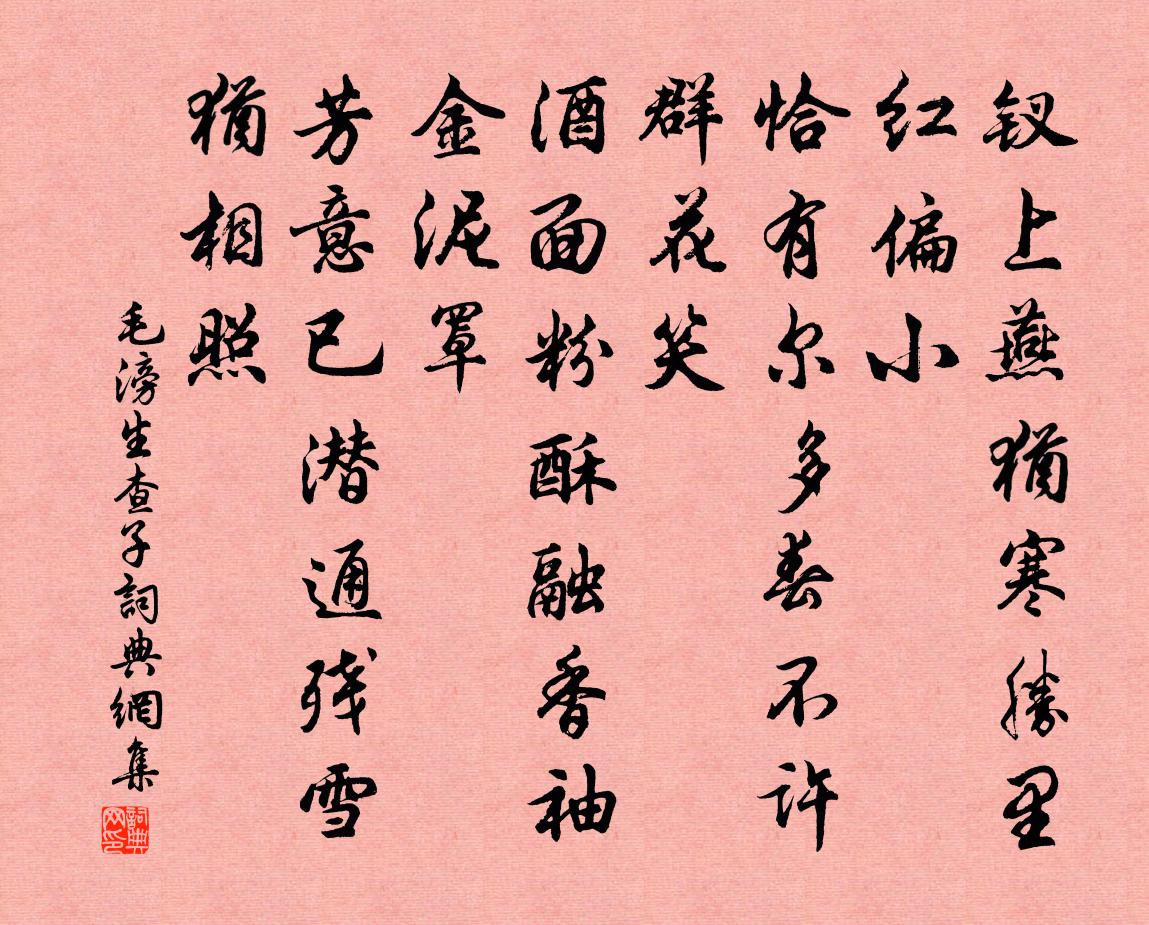 钗上燕犹寒勝里
红偏小
恰有尔多春不许
群花笑
酒面粉酥融香袖
金泥罩
芳意已潜通残雪
犹相照
毛滂生查子詞典網集
詞典网印